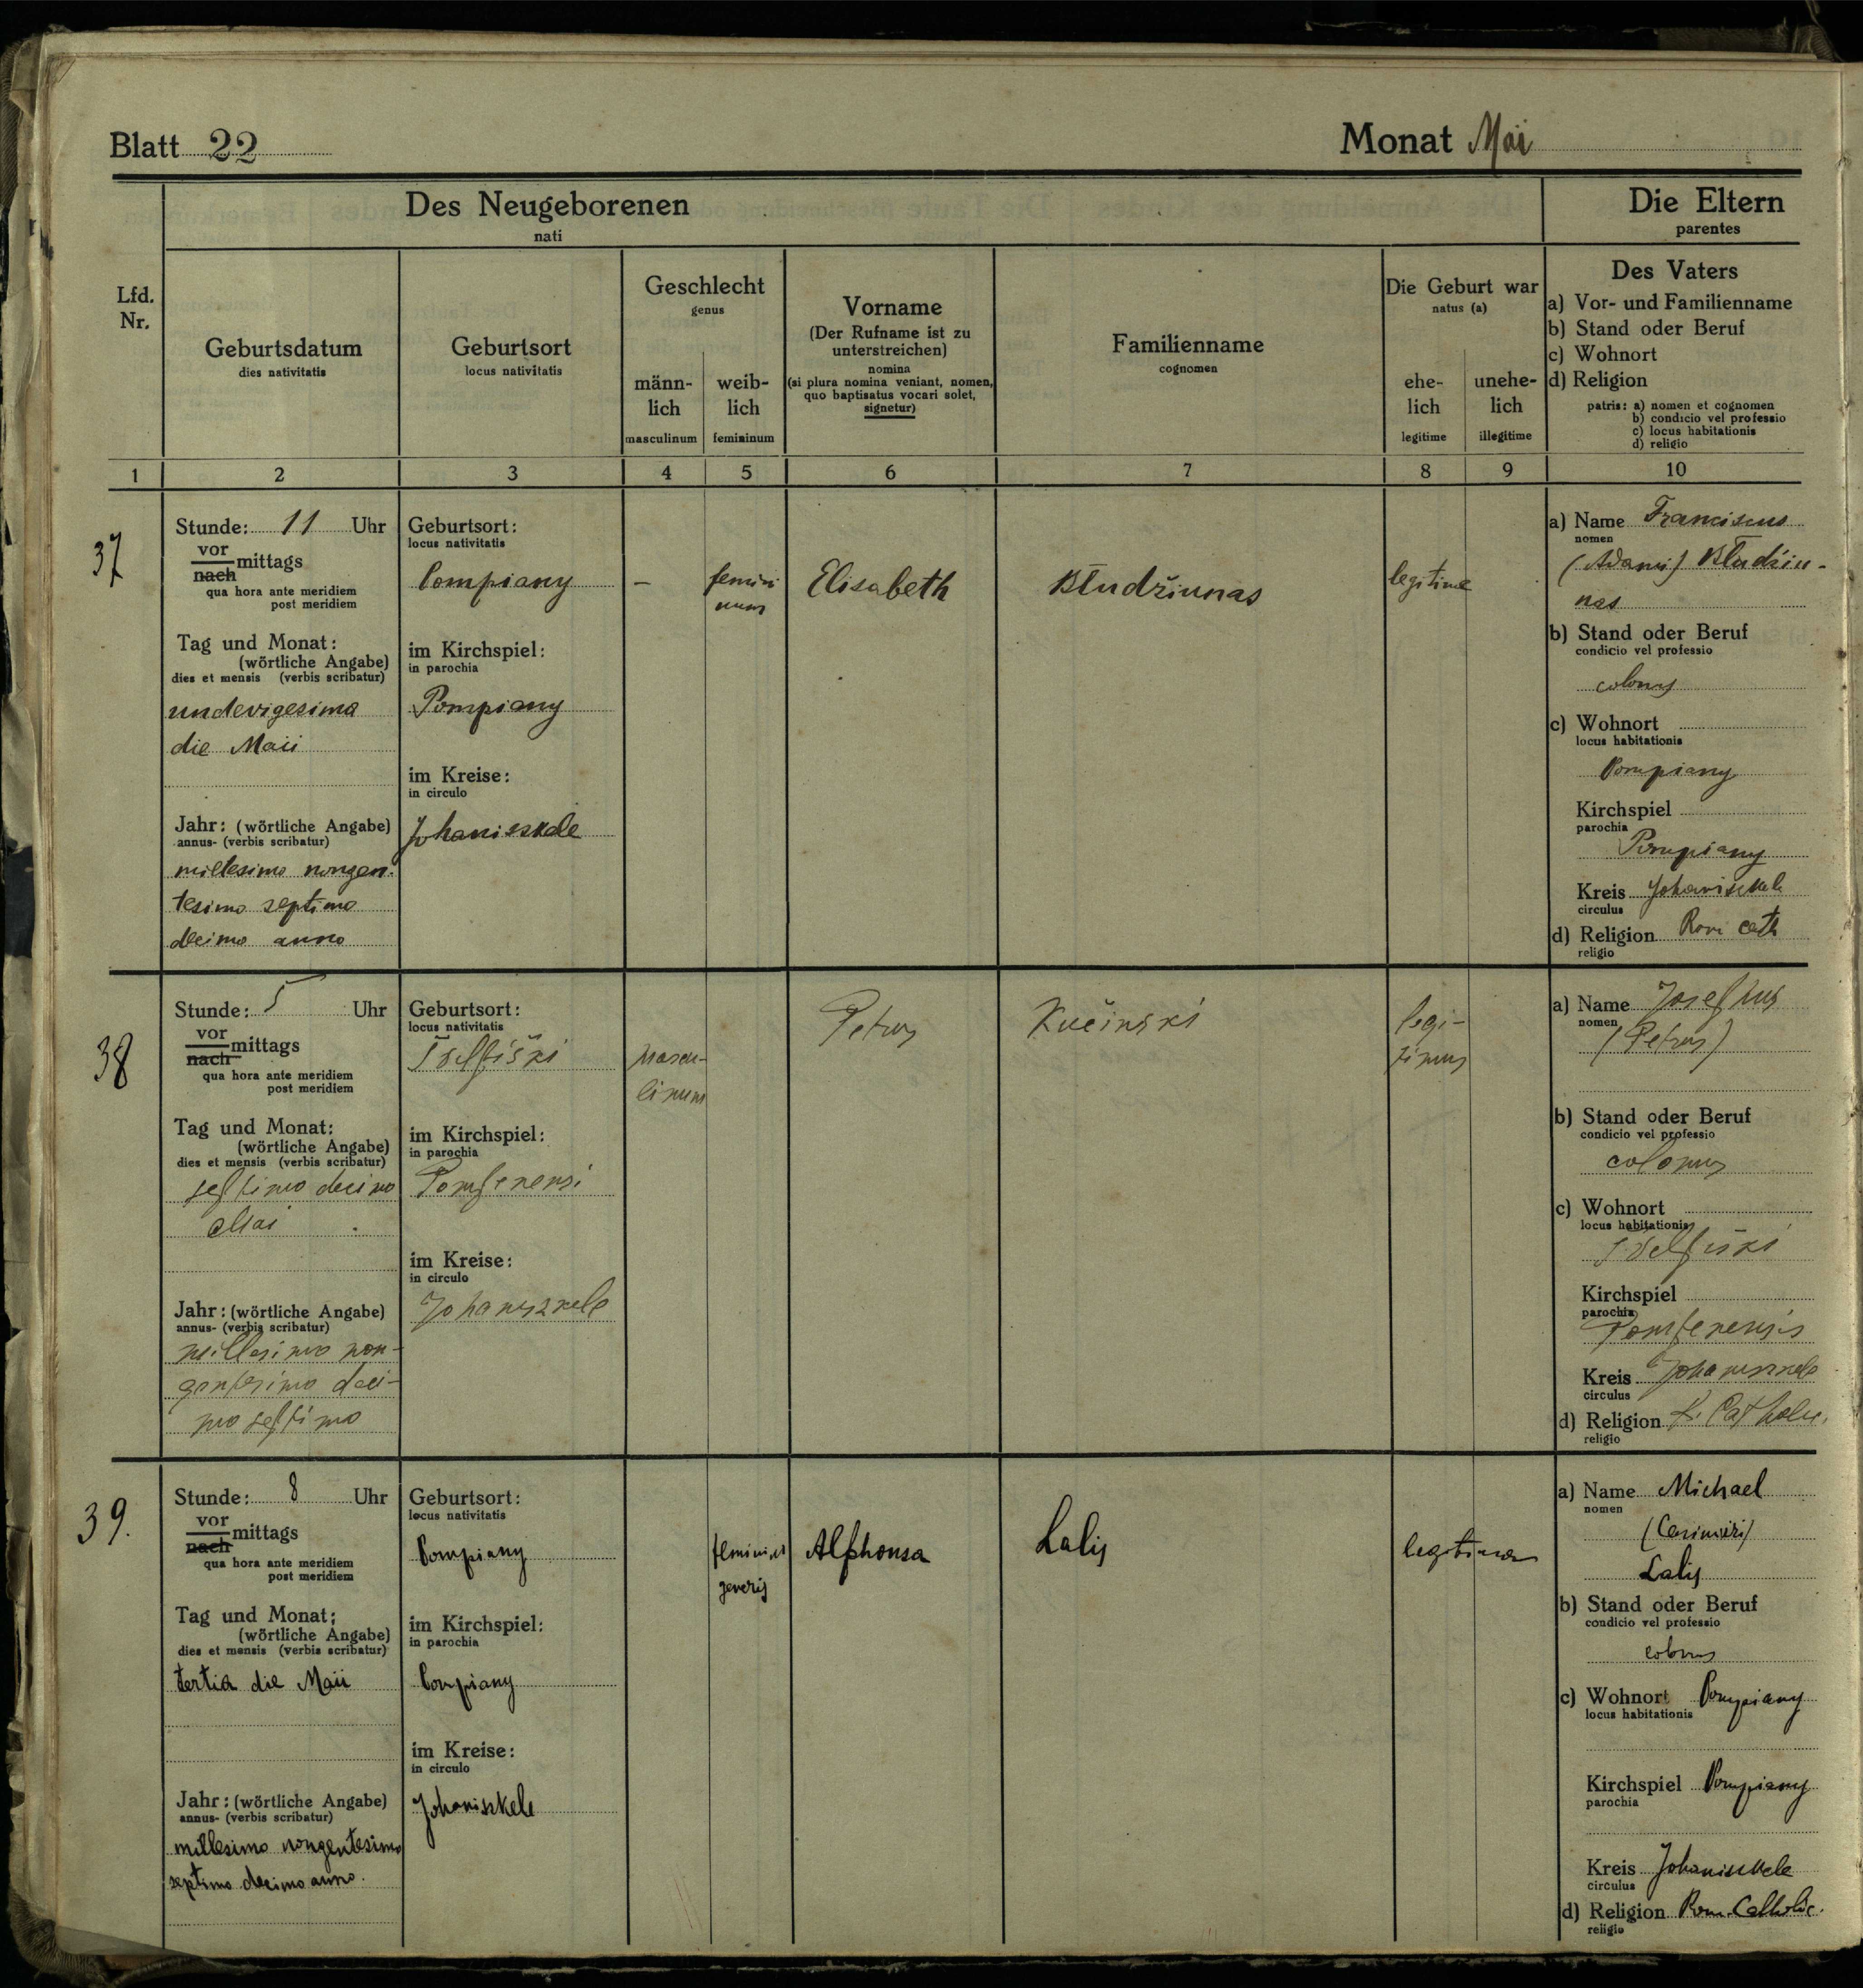 Blatt 22
Monat Mai
Des Neugeborenen
nati
Die Eltern
parentes
Lfd.
Nr.
Geburtsdatum
dies nativitatis
Geburtsort
locus nativitatis
Geschlecht
genus
männ-
lich
masculinum
weib-
lich
femininum
Vorname
(Der Rufname ist zu
unterstreichen)
nomina
(si plura nomina veniant, nomen,
quo baptisatus vocari solet,
signetur)
Familienname
cognomen
Die Geburt war
natus (a)
ehe-
lich
legitime
unehe-
lich
illegitime
Des Vaters
a) Vor- und Familienname
b) Stand oder Beruf
c) Wohnort
d) Religion
patris: a) nomen et cognomen
b) condicio vel professio
c) locus habitationis
d) religio
1 2 3 4 5 6 7 8 9 10
37
Stunde: 11 Uhr
vor
nach mittags
qua hora ante meridiem
post meridiem
Tag und Monat:
(wörtliche Angabe)
dies et mensis (verbis scribatur)
undevigesima
die Maii
Jahr: (wörtliche Angabe)
annus- (verbis scribatur)
millesimo nongen-
tesimo septimo
decimo anno
Geburtsort:
locus nativitatis
Pompiany
im Kirchspiel:
in parochia
Pompiany
im Kreise:
in circulo
Johaniszkele
–
femini
num
Elisabeth
Błudžiunas
legitime
a) Name Franciscus
nomen
(Adami) Błudžiu-
nas
b) Stand oder Beruf
condicio vel professio
colonus
c) Wohnort
locus habitationis
Pompiany
Kirchspiel
parochia
Pompiany
Kreis Johaniszkele
circulus
d) Religion Rom cath
religio
38
Stunde: 5 Uhr
vor
nach mittags
qua hora ante meridiem
post meridiem
Tag und Monat:
(wörtliche Angabe)
dies et mensis (verbis scribatur)
septimo decimo
Mai
Jahr: (wörtliche Angabe)
annus- (verbis scribatur)
millesimo non-
gentesimo deci-
mo septimo
Geburtsort:
locus nativitatis
im Kirchspiel:
in parochia
Pompenensi
im Kreise:
in circulo
Johaniszkele
mascu-
linum
Petrus
Kučinski
legi-
timus
a) Name Josephus
nomen
(Petrus)
b) Stand oder Beruf
condicio vel professio
colonus
c) Wohnort
locus habitationis
Kirchspiel
parochia
Pompenensis
Kreis Johaniszkele
circulus
d) Religion R. Catholic.
religio
39.
Stunde: 8 Uhr
vor
nach mittags
qua hora ante meridiem
post meridiem
Tag und Monat:
(wörtliche Angabe)
dies et mensis (verbis scribatur)
tertia die Maii
Jahr: (wörtliche Angabe)
annus- (verbis scribatur)
millesimo nongentesimo
septimo decimo anno.
Geburtsort:
locus nativitatis
Pompiany
im Kirchspiel:
in parochia
Pompiany
im Kreise:
in circulo
Johaniszkele
feminini
generis
Alphonsa
Lalis
legitima
a) Name Michael
nomen
(Casimiri)
Lalis
b) Stand oder Beruf
condicio vel professio
colonus
c) Wohnort Pompiany
locus habitationis
Kirchspiel Pompiany
parochia
Kreis Johaniszkele
circulus
d) Religion Rom. Catholic.
religio